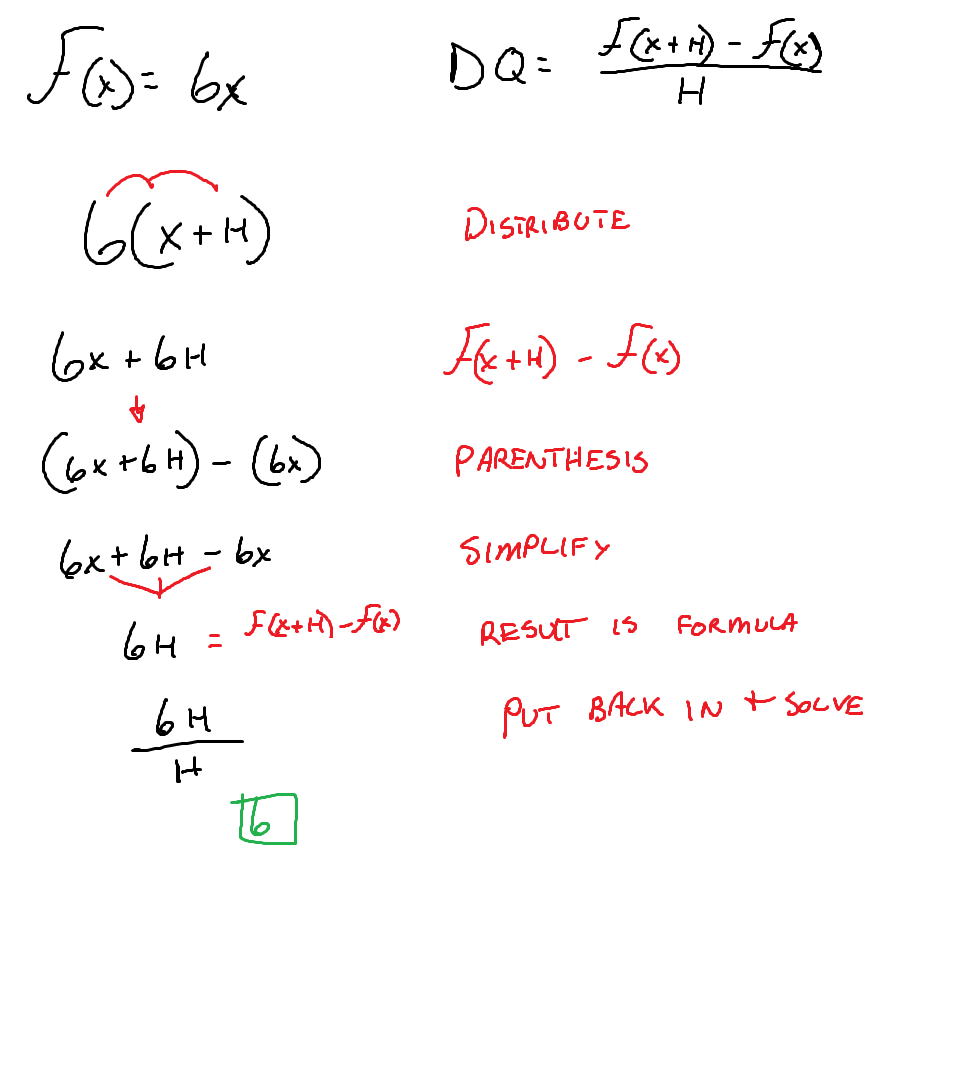 F(x) = 6x
DQ = F(x+H) - F(x)
H
6(x+H)
DISTRIBUTE
6x + 6H
F(x+H) - F(x)
(6x+6H) - (6x)
PARENTHESIS
6x + 6H - 6x
SIMPLIFY
6H = F(x+H) - F(x)
RESULT IS FORMULA
6H
H
PUT BACK IN + SOLVE
6